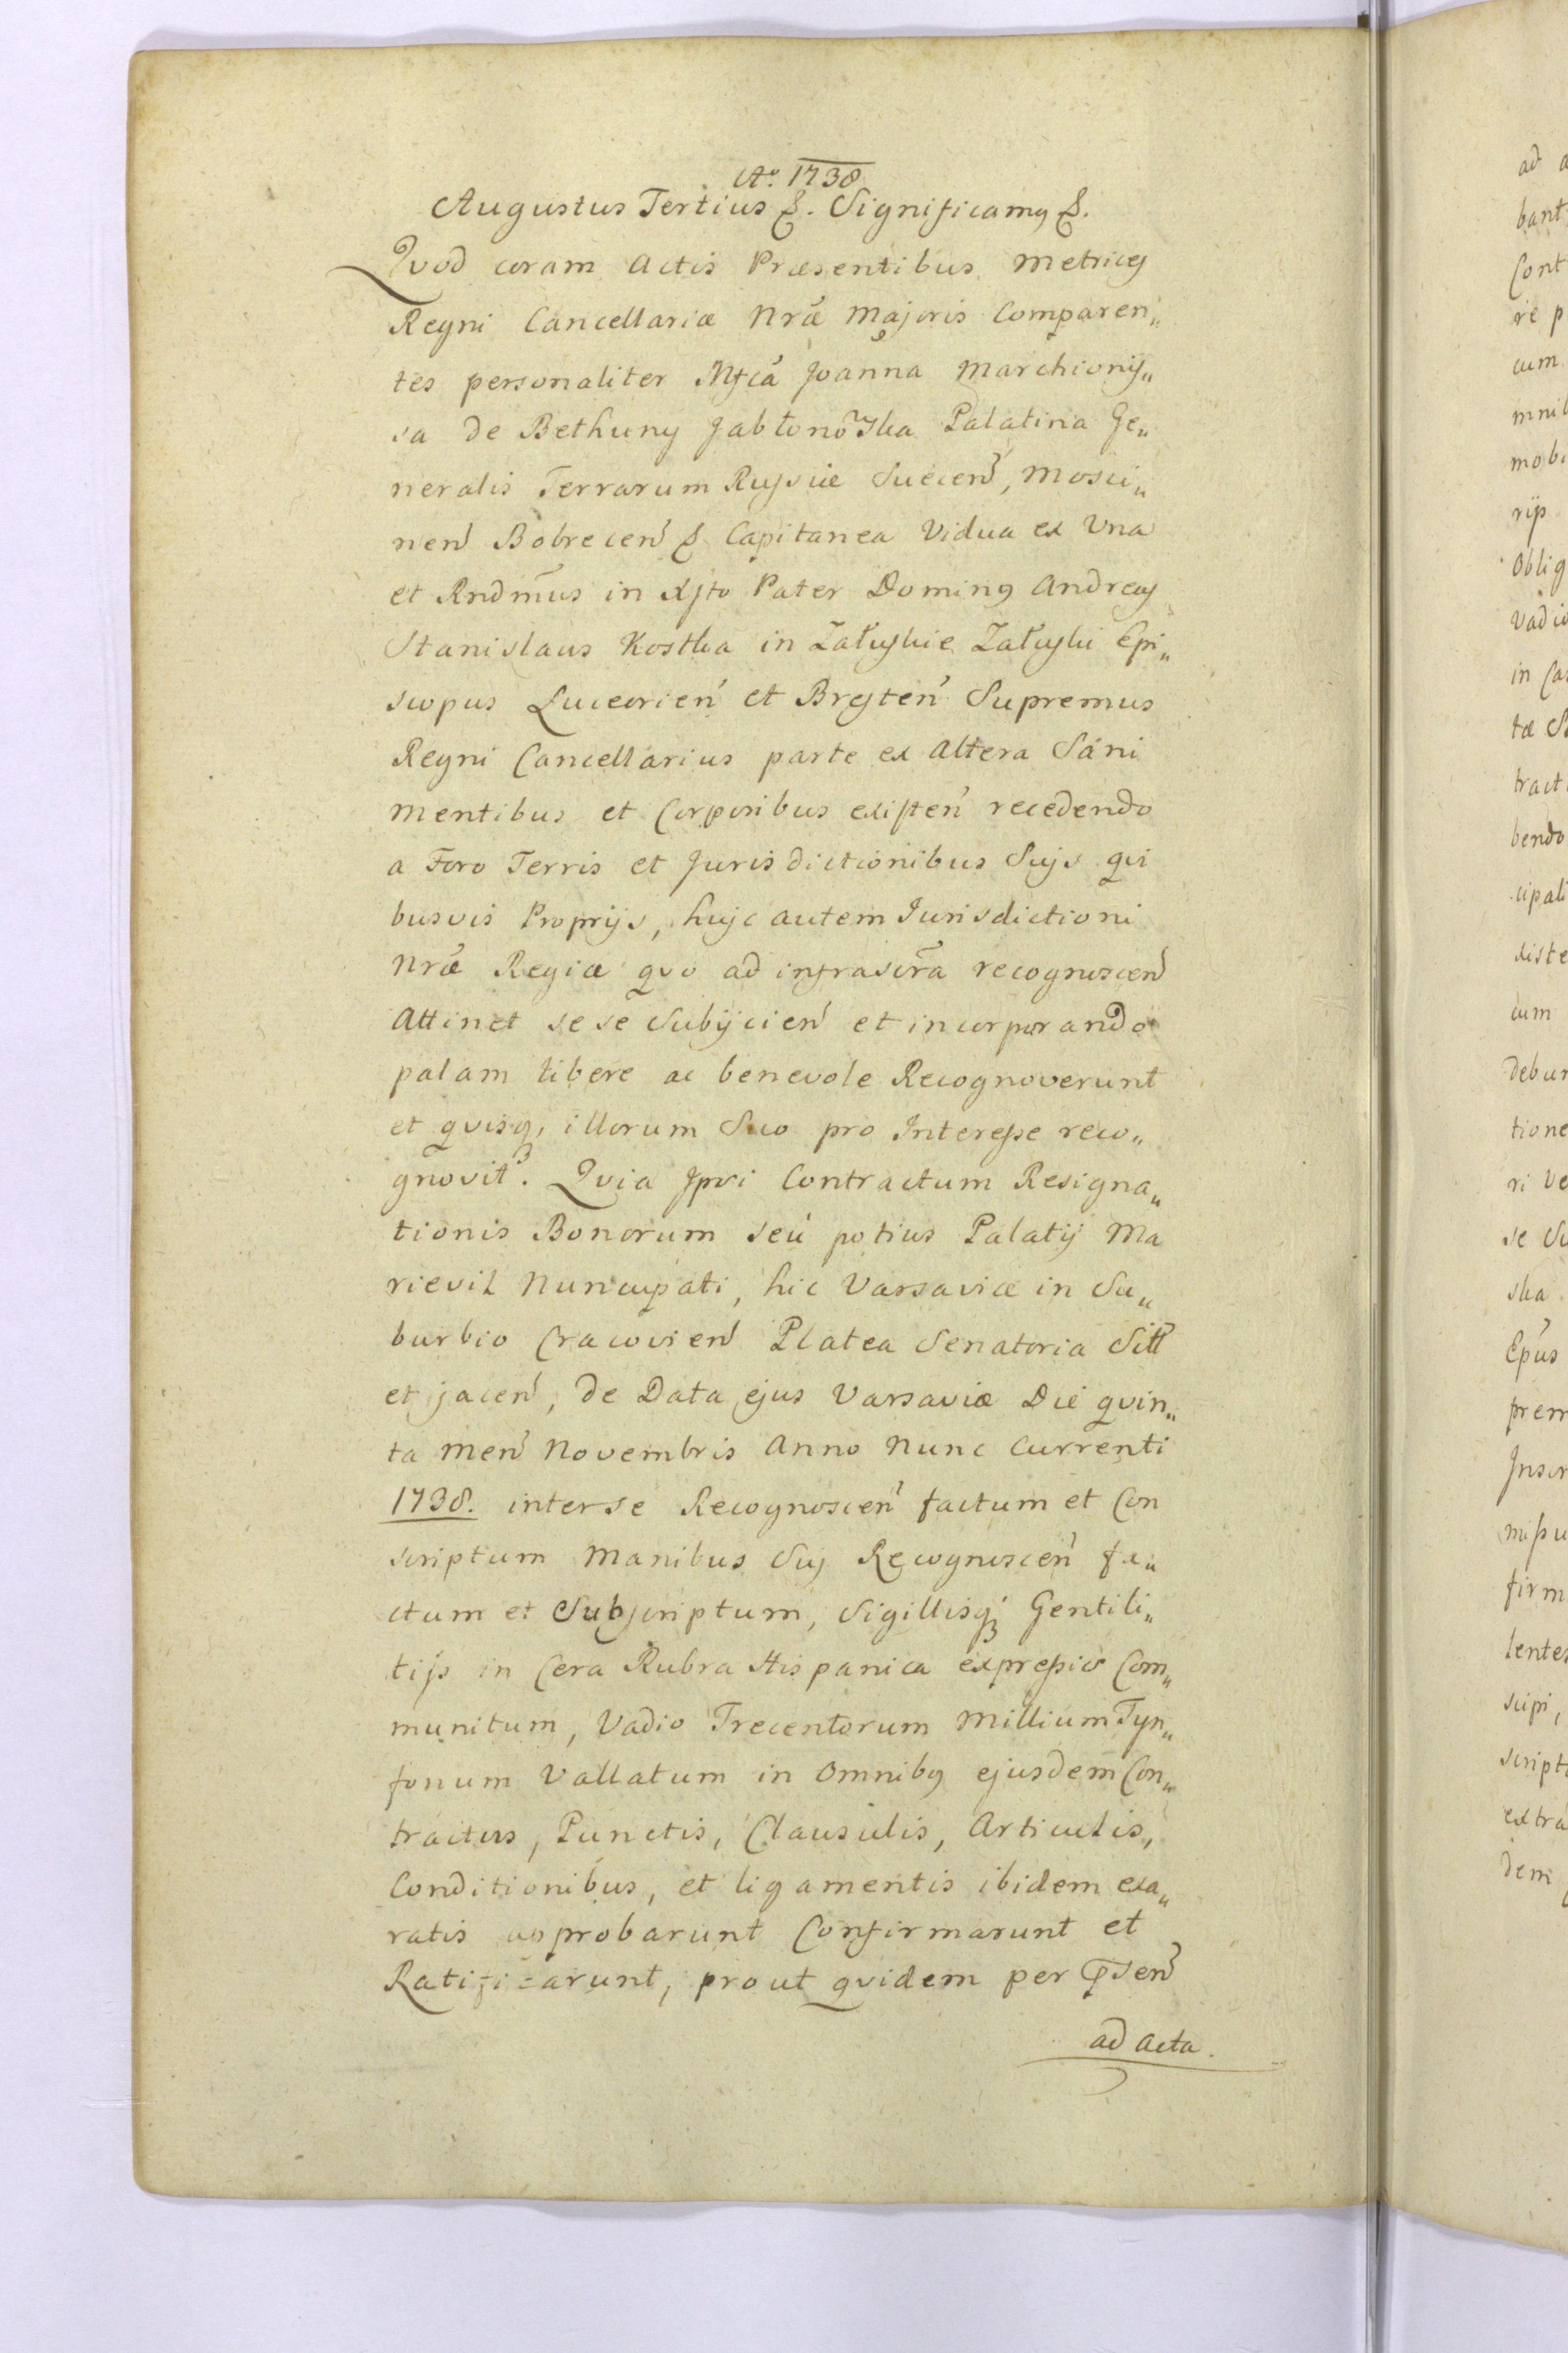 Aº. 1738
Augustus Tertius &. Significamus &.
Qvod coram Actis Præsentibus Metrices
Regni Cancellariæ Nræ Majoris Comparen„
tes personaliter Mfca Joanna Marchionis„
sa de Bethuny Jabłonowska Palatina Ge„
neralis Terrarum Russiæ Suecen, Mosci„
nen Bobrecen & Capitanea Vidua ex Vna
et Rndmus in Xsto Pater Dominus Andreas
Stanislaus Kostka in Załuskie Załuski Epi„
scopus Luceorien et Bresten Supremus
Regni Cancellarius parte ex Altera Sani
mentibus et Corporibus existen recedendo
a Foro Terris et Jurisdictionibus Suis qvi
busvis Proprijs, huic autem Jurisdictioni
Nræ Regiæ qvo ad infrascra recognoscen
Attinet sese Subijcien et incorporando
palam libere ac benevole Recognoverunt
et qvisq, illorum Suo pro Interesse reco„
gnovit. Qvia Ipsi Contractum Resigna„
tionis Bonorum seu potius Palatij Ma
rievil Nuncupati, hic Varsaviæ in Su„
burbio Cracovien Platea Senatoria Sitt
et jacen, de Data ejus Varsaviæ Die qvin„
ta Men Novembris Anno Nunc Currenti
1738. inter se Recognoscen factum et Con
scriptum Manibus Suis Recognoscen fa„
ctum et Subscriptum, Sigillisq Gentili„
tijs in Cera Rubra Hispanica expressis Com„
munitum, Vadio Trecentorum Millium Tyn„
fonum Vallatum in Omnibus ejusdem Con„
tractus, Punctis, Clausulis, Articulis,
Conditionibus, et ligamentis ibidem exa„
ratis approbarunt Confirmarunt et
Ratificarunt, prout qvidem per Psen
ad Acta.
ad
bant
Cont
re p
cum
mnib
rijs
Oblig
Vadio
in
tæ
tract
bendo
cipali
cum
debu
tione
ri
se
ska
Epus
prem
firm
lentes
script
extra
dem